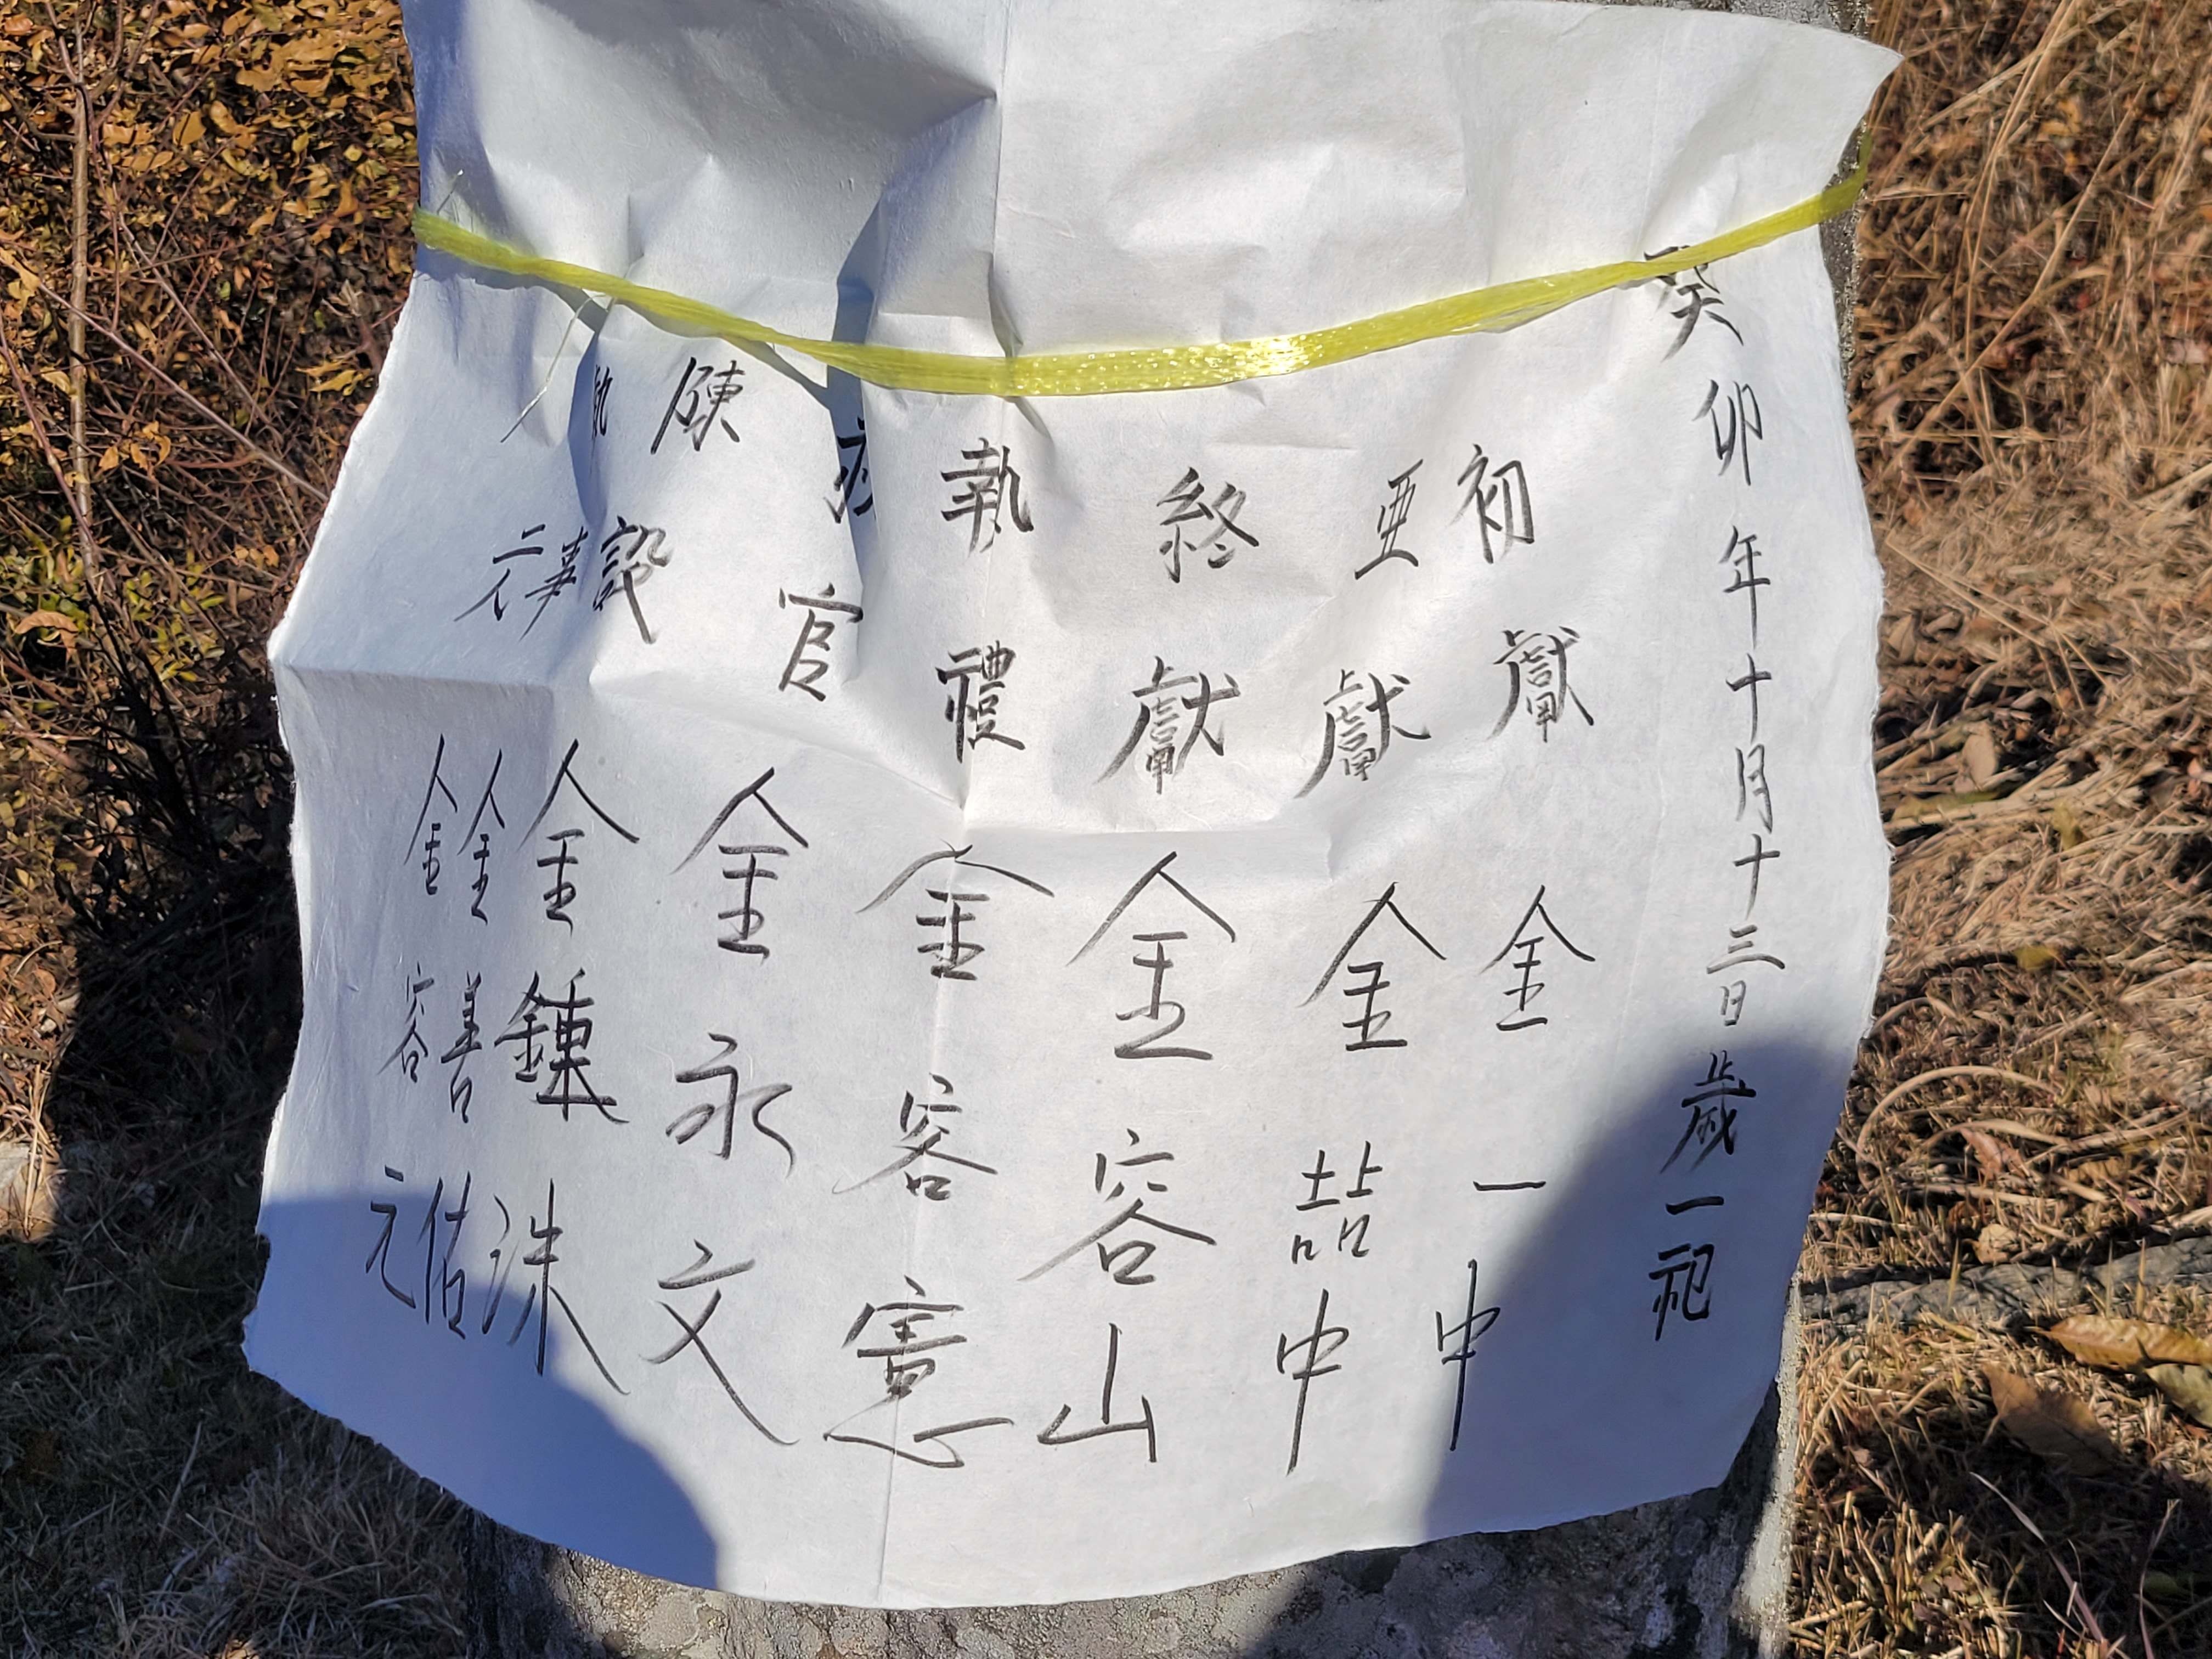 癸卯年十月十三日歲一祀
初獻 金一中
亞獻 金喆中
終獻 金容山
執禮 金容憲
官 金永文
陳設 金鍾洙
執事 金善佶
元 金容元